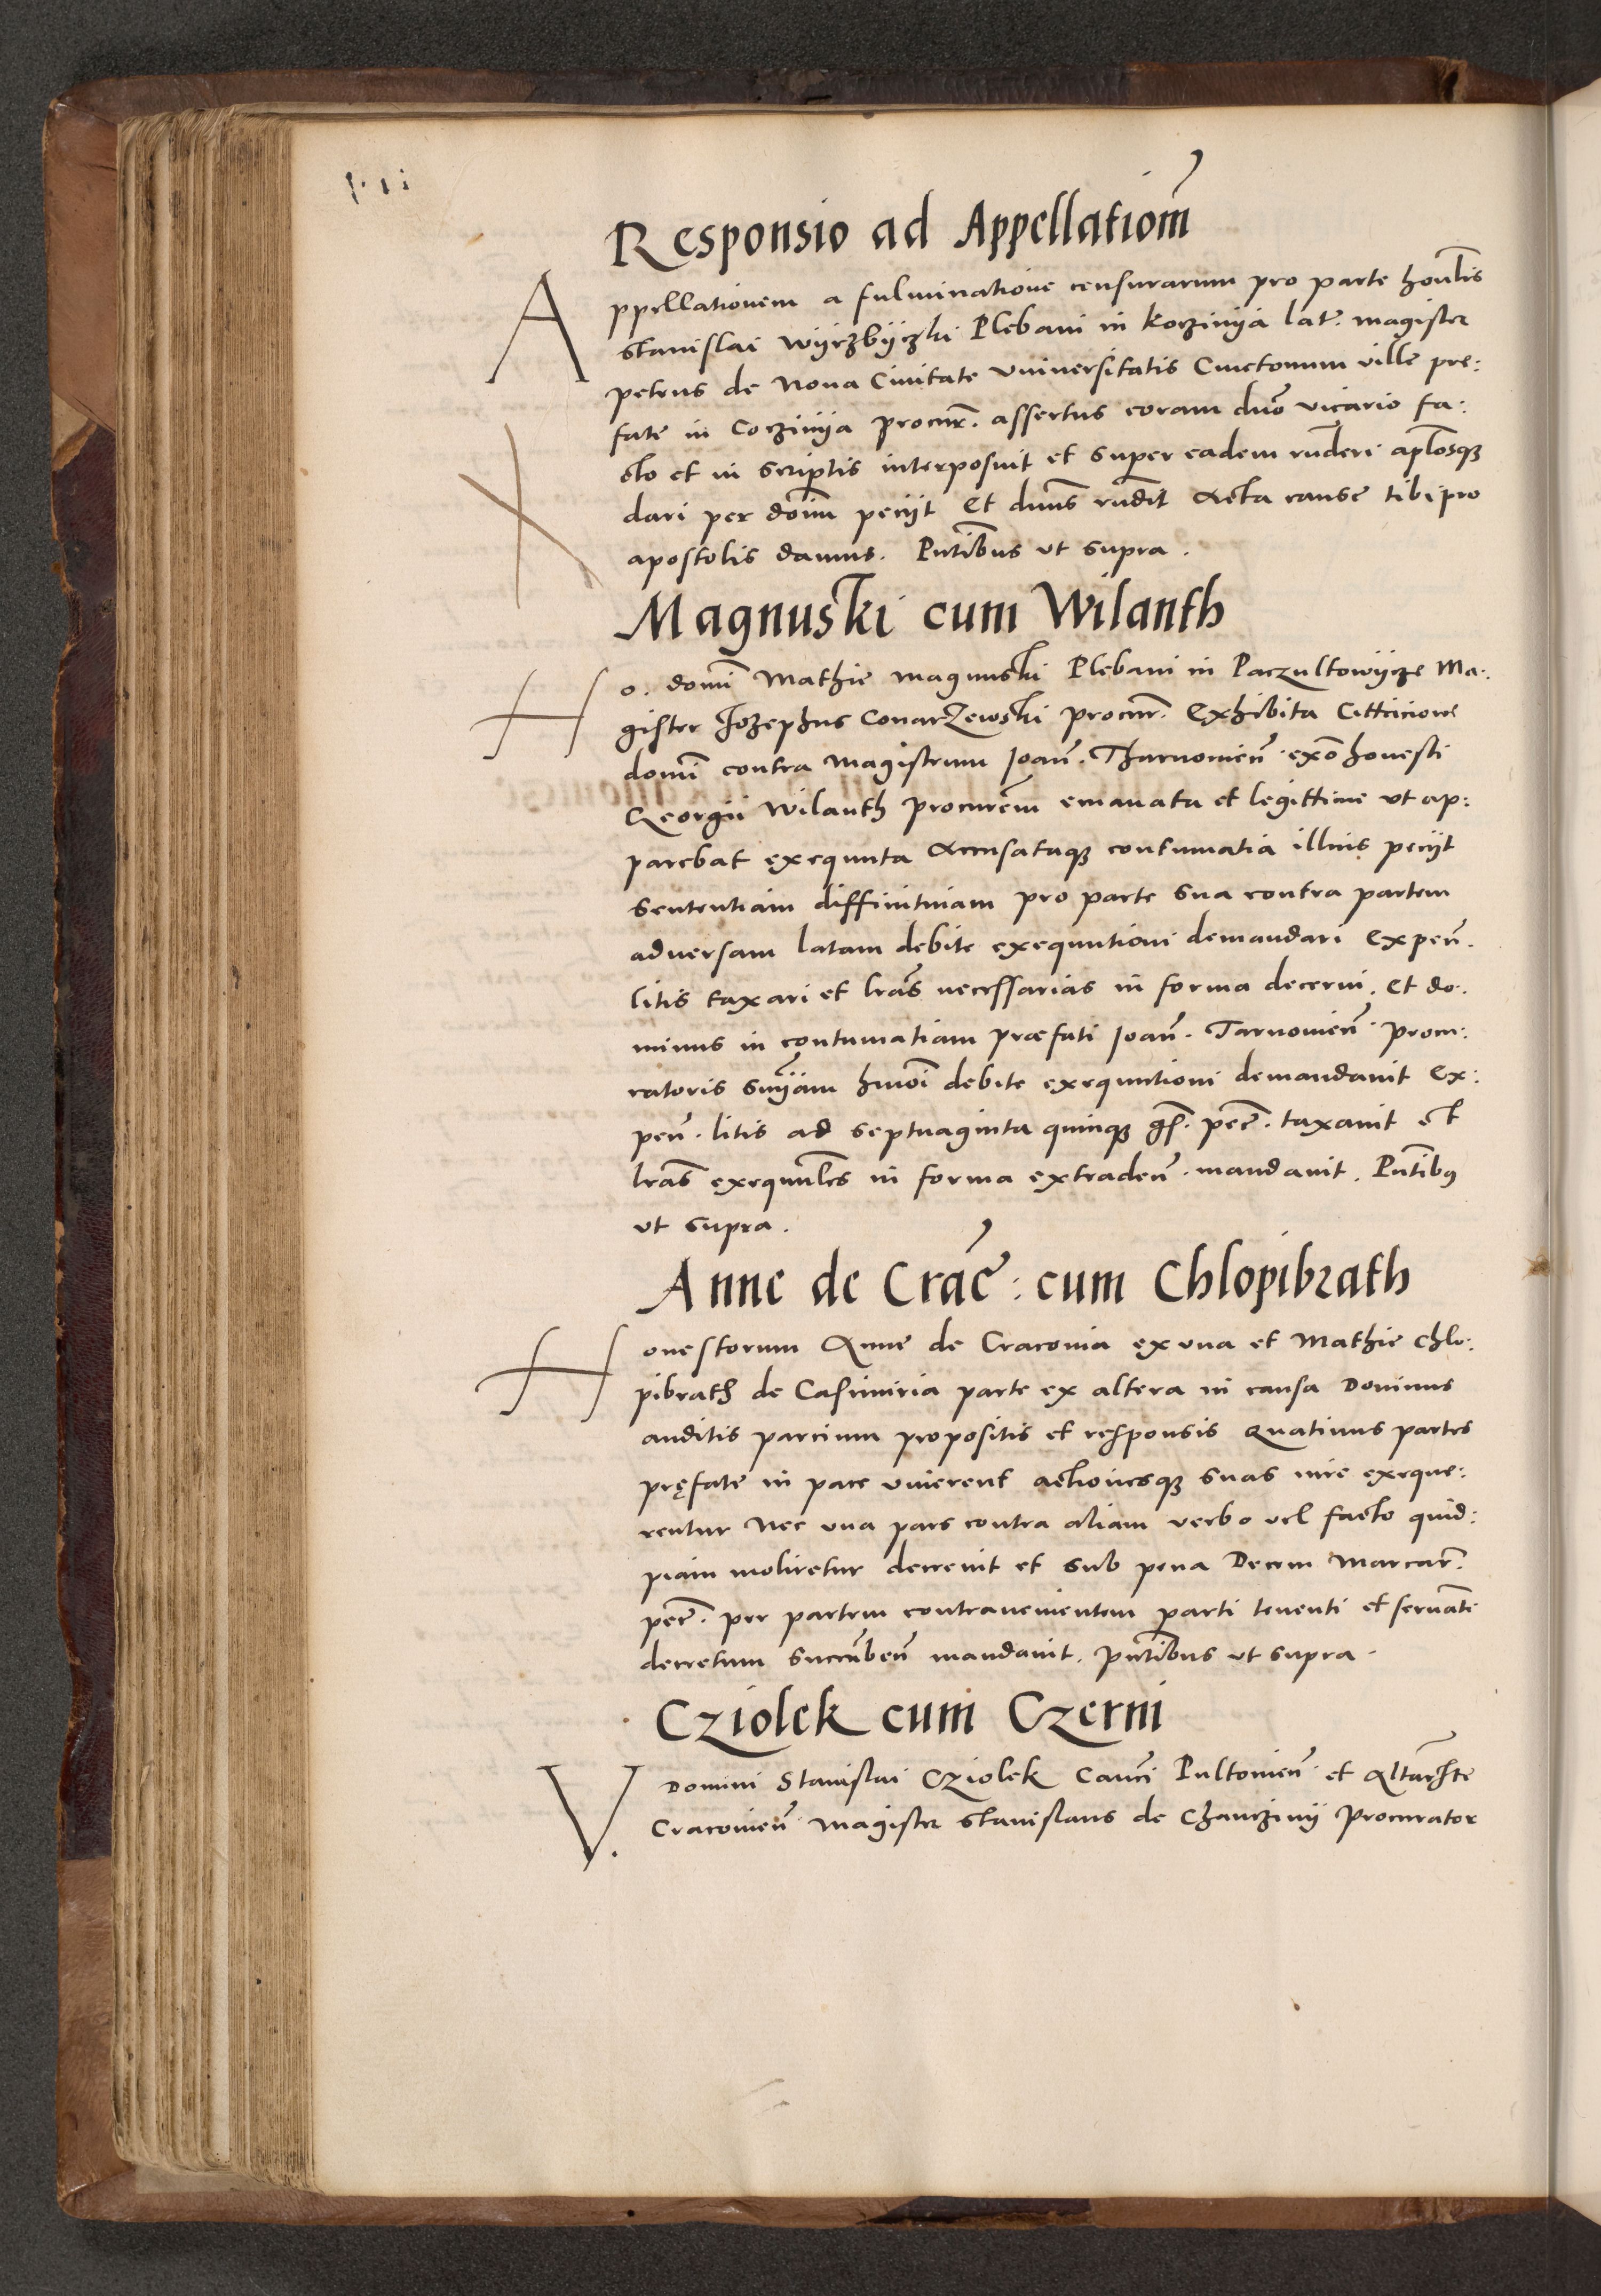 Responsio ad Appellatiom̃
Appellationem a fulminatione censurarum pro parte honĺis
Stanislai Wyrzbyczki Plebani in Korzinya lat. magister
petrus de Nova Civitate Universitatis Cmetonum ville pre:
fate in Corzinya procur̃. assertus coram dno vicario fa:
cto et in scriptis interposuit et super eadem rñderi apłosqȝ
dari per dom̃ peciit Et dnus rñdit Acta cause tibi pro
apostolis damus. Pñtibus ut supra.
Magnuski cum Wilanth
Ho. domĩ Mathie magnuski Plebani in Paczultowycze Ma:
gister Jozephus Conarzewski procur̃. Exhibita Cittacione
domĩ contra magistrum Joañ. Tharnovieñ. exõ honesti
Georgii Wilanth procurem̃ emanata et legittime ut ap:
parebat exequuta Accusataqȝ contumatia illius peciit
sententiam diffinitivam pro parte sua contra partem
adversam latam debite exequutioni demandari Expeñ.
litis taxari et lrãs necessarias in forma decerni. Et do:
minus in contumatiam præfati Joañ. Tarnovieñ. procu:
ratoris sñyam hmoĩ debite exequutioni demandavit Ex:
peñ. litis ad septuaginta quinqȝ gȓ. pec̃. taxavit et
lrãs exequuĺes in forma extradeñ. mandavit. Pñtibꝰ
ut supra.
Anne de Crac̃: cum Chlopibrath
Honestorum Anne de Cracovia ex una et Mathie Chlo:
pibrath de Casimiria parte ex altera in causa Dominus
auditis parcium propositis et responsis Quatinus partes
pręfate in pace viverent actionesqȝ suas iure exeque:
rentur Nec una pars contra aliam verbo vel facto quid:
piam moliretur decrevit et sub pena Decem Marcar̃.
pec̃. per partem contravenientem parti tenenti et servãte
decretum succũbeñ mandavit. pñtibus ut supra.
Cziolek cum Czerni
V. Domini Stanislai Cziolek Canci Pultovieñ. et Altar̃ste
Cracovieñ. magister Stanislaus de Chanczini Procurator